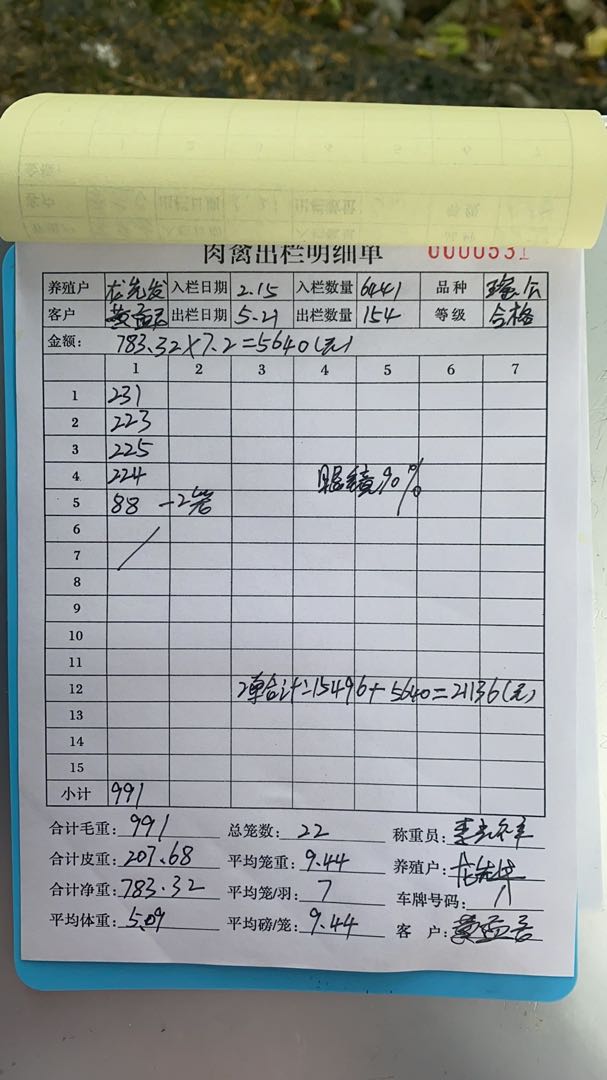 肉禽出栏明细单 0000531
养殖户 龙先发 入栏日期 2.15 入栏数量 6441 品种 瑶公
客户 黄孟君 出栏日期 5.21 出栏数量 154 等级 合格
金额: 783.32×7.2=5640(元)
1 2 3 4 5 6 7
1 231
2 223
3 225
4 224 眼镜90%
5 88 -2笼
6
7
8
9
10
11
12 2单合计=15496+5640=21136(元)
13
14
15
小计 991
合计毛重: 991 总笼数: 22 称重员:
合计皮重: 207.68 平均笼重: 9.44 养殖户:
合计净重: 783.32 平均笼/羽: 7 车牌号码:
平均体重: 5.09 平均磅/笼: 9.44 客户: